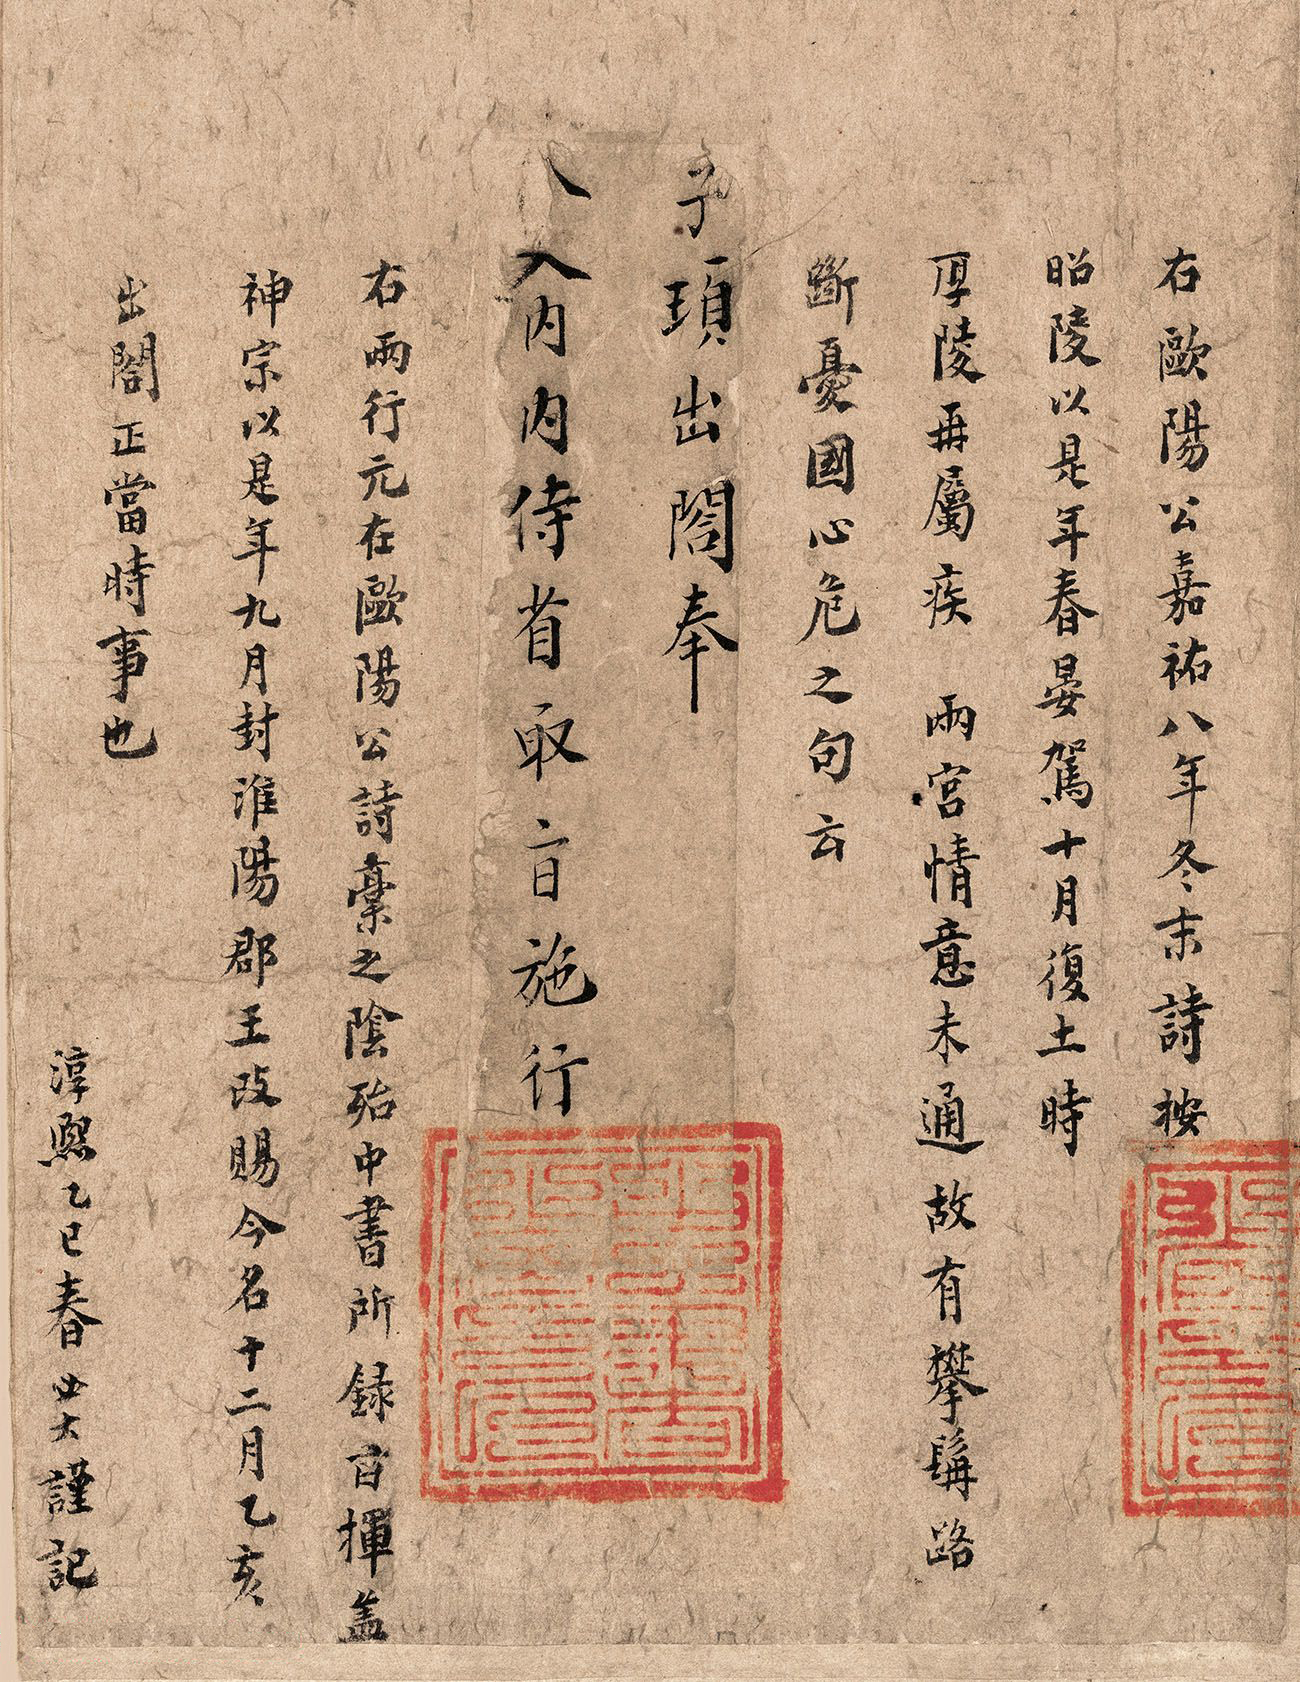 右歐陽公嘉祐八年冬末詩按
昭陵以是年春晏駕十月復土時
厚陵再屬疾 兩宮情意未通故有攀髯路
斷憂國心危之句云
子頊出閤奉
入內內侍省取旨施行
右兩行元在歐陽公詩稾之陰殆中書所録旨揮盖
神宗以是年九月封淮陽郡王改賜今名十二月乙亥
出閤正當時事也
淳熙乙巳春 謹記